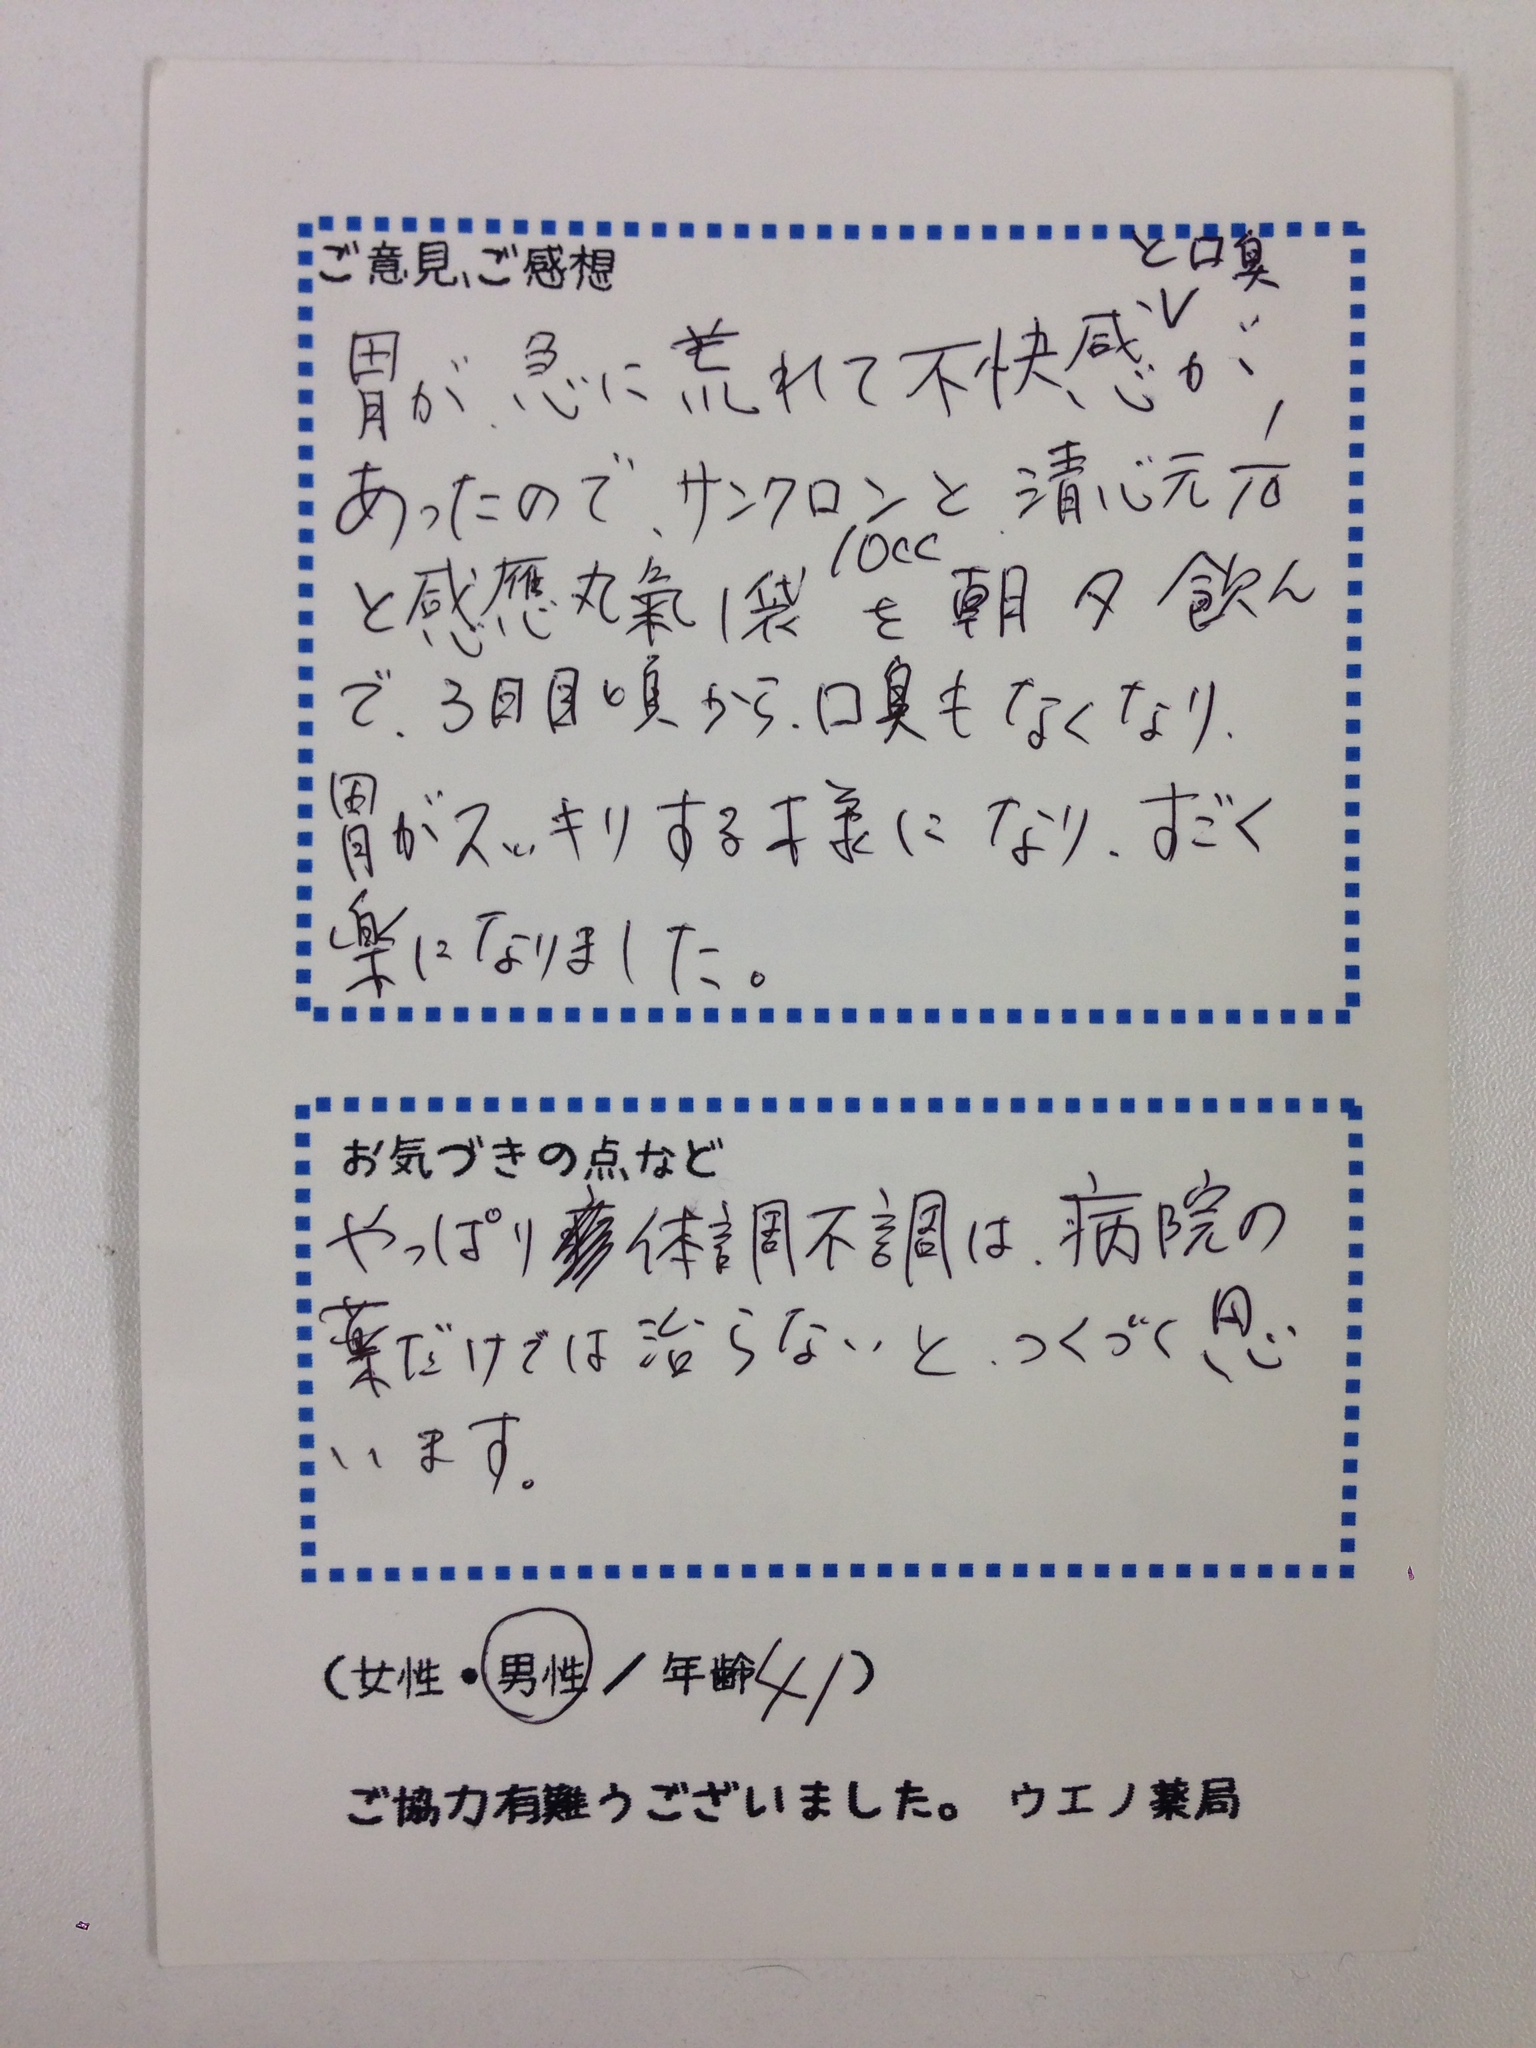 ご意見、ご感想
と口臭
胃が急に荒れて不快感が
あったので、サンクロンと清心元
10cc
と感應丸氣1袋を朝夕飲ん
で、3日目頃から、口臭もなくなり、
胃がスッキリする様になり、すごく
楽になりました。
お気づきの点など
やっぱり体調不調は、病院の
薬だけでは治らないと、つくづく思
います。
(女性・男性/年齢41)
ご協力有難うございました。 ウエノ薬局